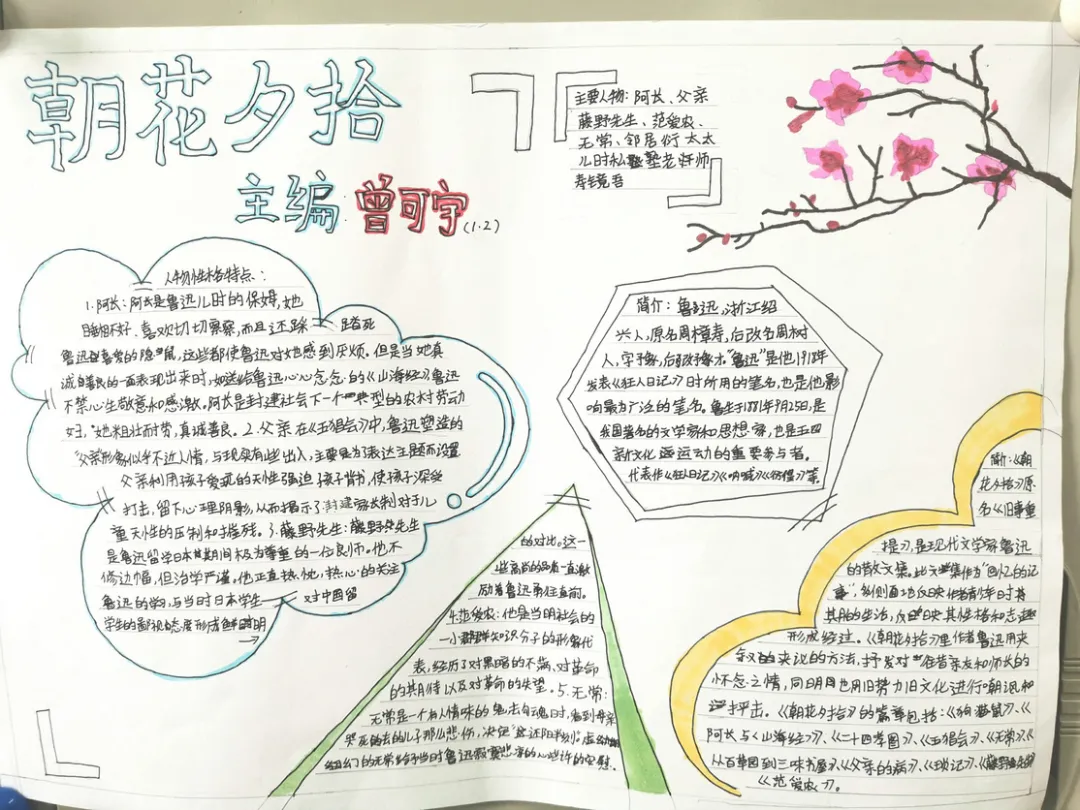 朝花夕拾
主编:曾可宇(1.2)
主要人物:阿长、父亲
藤野先生、范爱农、
无常、邻居衍太太
儿时私塾老师
寿镜吾
人物性格特点:
1.阿长:阿长是鲁迅儿时的保姆,她
睡相不好、喜欢切切察察,而且还踩踏死
鲁迅喜爱的隐鼠,这些都使鲁迅对她感到厌烦。但是当她真
诚善良的一面表现出来时,如送给鲁迅心心念念的《山海经》,鲁迅
不禁心生敬意和感激。阿长是封建社会下一个典型的农村劳动
妇,她粗壮耐劳,真诚善良。2.父亲在《五猖会》中,鲁迅塑造的
父亲形象似乎不近人情,与现实有些出入,主要是为表达主题而设置
父亲利用孩子爱玩的天性强迫孩子背书,使孩子深受
打击,留下心理阴影,从而揭示了封建家长制对于儿
童天性的压制和摧残。3.藤野先生:藤野先生
是鲁迅留学日本其期间极为尊重的一位良师。他不
修边幅,但治学严谨。他正直热忱,热心的关注
鲁迅的学习,与当时日本学生对中国留
学生的鄙视态度形成鲜明
的对比。这一
些高尚的品质一直激
励着鲁迅勇往直前。
4.范爱农:他是当明社会的
一小群知识分子的形象代
表,经历了对黑暗的不满、对革命
的其月待以及对革命的失望。5.无常:
无常是一个有人情味的鬼,去勾魂时,看到母亲
哭死去的儿子那么悲伤,决定"放还阳半刻"。
们的无常给予当时鲁迅悲凉的心些许的安慰。
简介:鲁迅,浙江绍
兴人,原名周樟寿,后改名周树
人,字豫山,后改豫才。"鲁迅"是他1918年
发表《狂人日记》时所用的笔名,也是他影
响最为广泛的笔名。鲁生于1881年9月25日,是
我国著名的文学家和思想家,也是五四
新文化运动的重要参与者。
代表作《狂人日记》《呐喊》《彷徨》等
简介:《朝
花夕拾》原
名《旧事重
提》,是现代文学家鲁迅
的散文集。此文集作为"回忆的记
事",多侧面地反映作者青少年时
期的生活,反映其性格和志趣
形成经过。《朝花夕拾》里作者鲁迅用夹
叙的夹议的方法,抒发对昔亲友和师长的
怀念之情,同时也用旧势力旧文化进行嘲讽和
抨击。《朝花夕拾》的篇章包括:《狗猫鼠》、《
阿长与《山海经》》、《二十四孝图》、《五猖会》、《无常》、《
从百草园到三味书屋》、《父亲的病》、《琐记》、《藤野先生》
《范爱农》。